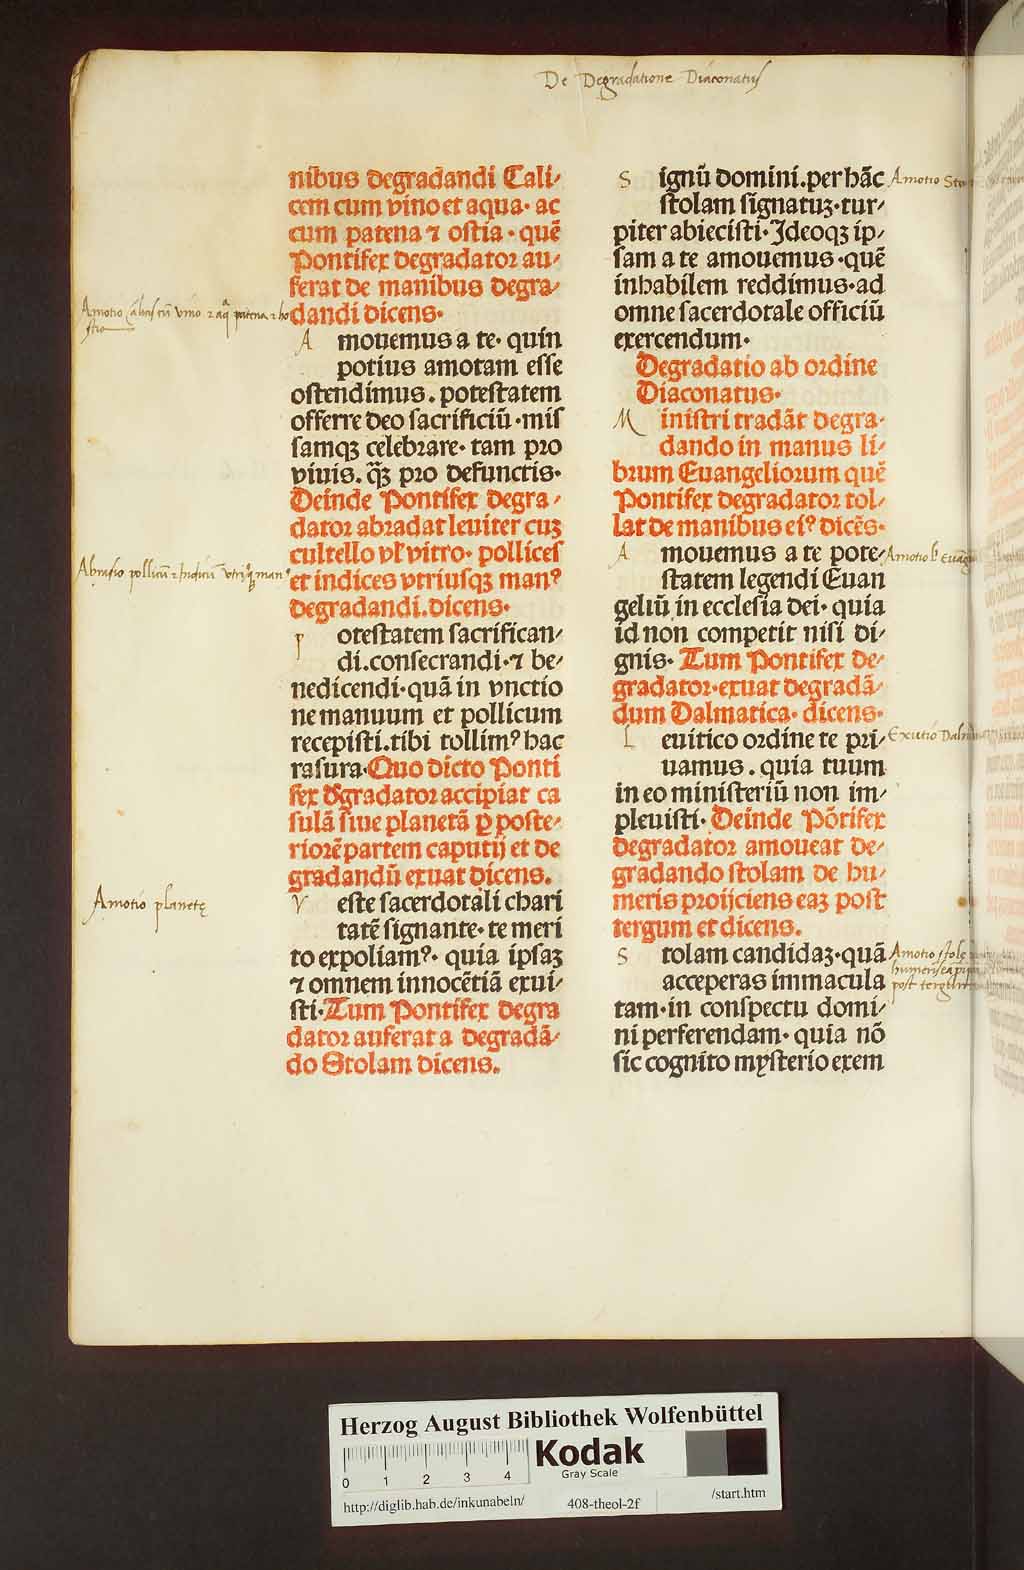 De Degradatione Diaconatus
nibus degradandi Cali⸗
cem cum vino et aqua· ac
cum patena ⁊ ostia · quē
Pontifex degradator au⸗
ferat de manibus degra⸗
dandi dicens·
A mouemus a te· quin
potius amotam esse
ostendimus . potestatem
offerre deo sacrificiū ·mis
samqꝫ celebrare· tam pro
viuis . q̄ꝫ pro defunctis·
Deinde Pontifex degra⸗
dator abradat leuiter cuꝫ
cultello vl' vitro· pollices
et indices vtriusqꝫ manꝰ
degradandi.dicens·
P otestatem sacrifican⸗
di.consecrandi·⁊ be⸗
nedicendi·quā in vnctio
ne manuum et pollicum
recepisti.tibi tollimꝰ hac
rasura·Quo dicto Ponti
fex d̄gradator accipiat ca
sulā siue planetā ꝑ poste⸗
riorē partem caputij et de
gradandū exuat dicens.
V este sacerdotali chari
tatē signante· te meri
to expoliamꝰ· quia ipsaꝫ
⁊ omnem innocētiā exui⸗
sti·Tum Pontifex degra
dator auferat a degradā⸗
do Stolam dicens.
Amotio planetę
S ignū domini.per hāc
stolam signatuꝫ·tur⸗
piter abiecisti·Ideoqꝫ ip⸗
sam a te amouemus ·quē
inhabilem reddimus·ad
omne sacerdotale officiū
exercendum·
Degradatio ab ordine
Diaconatus·
M inistri tradāt degra·
dando in manus li⸗
brum Euangeliorum quē
Pontifex degradator tol⸗
lat de manibus eiꝰ dicēs·
A mouemus a te pote⸗
statem legendi Euan
geliū in ecclesia dei· quia
id non competit nisi di⸗
gnis· Tum Pontifex de⸗
gradator·exuat degradā⸗
dum Dalmatica· dicens·
L euitico ordine te pri⸗
uamus . quia tuum
in eo ministeriū non im⸗
pleuisti· Deinde Pōtifex
degradator amoueat de⸗
gradando stolam de hu⸗
meris proijciens eaꝫ post
tergum et dicens.
S tolam candidaꝫ·quā
acceperas immacula
tam·in conspectu domi⸗
ni perferendam· quia nō
sic cognito mysterio exem
Amotio
Amotio
Exutio
Amotio stolę
post
Herzog August Bibliothek Wolfenbüttel
0 1 2 3 4
Kodak
Gray Scale
http://diglib.hab.de/inkunabeln/ 408-theol-2f /start.htm